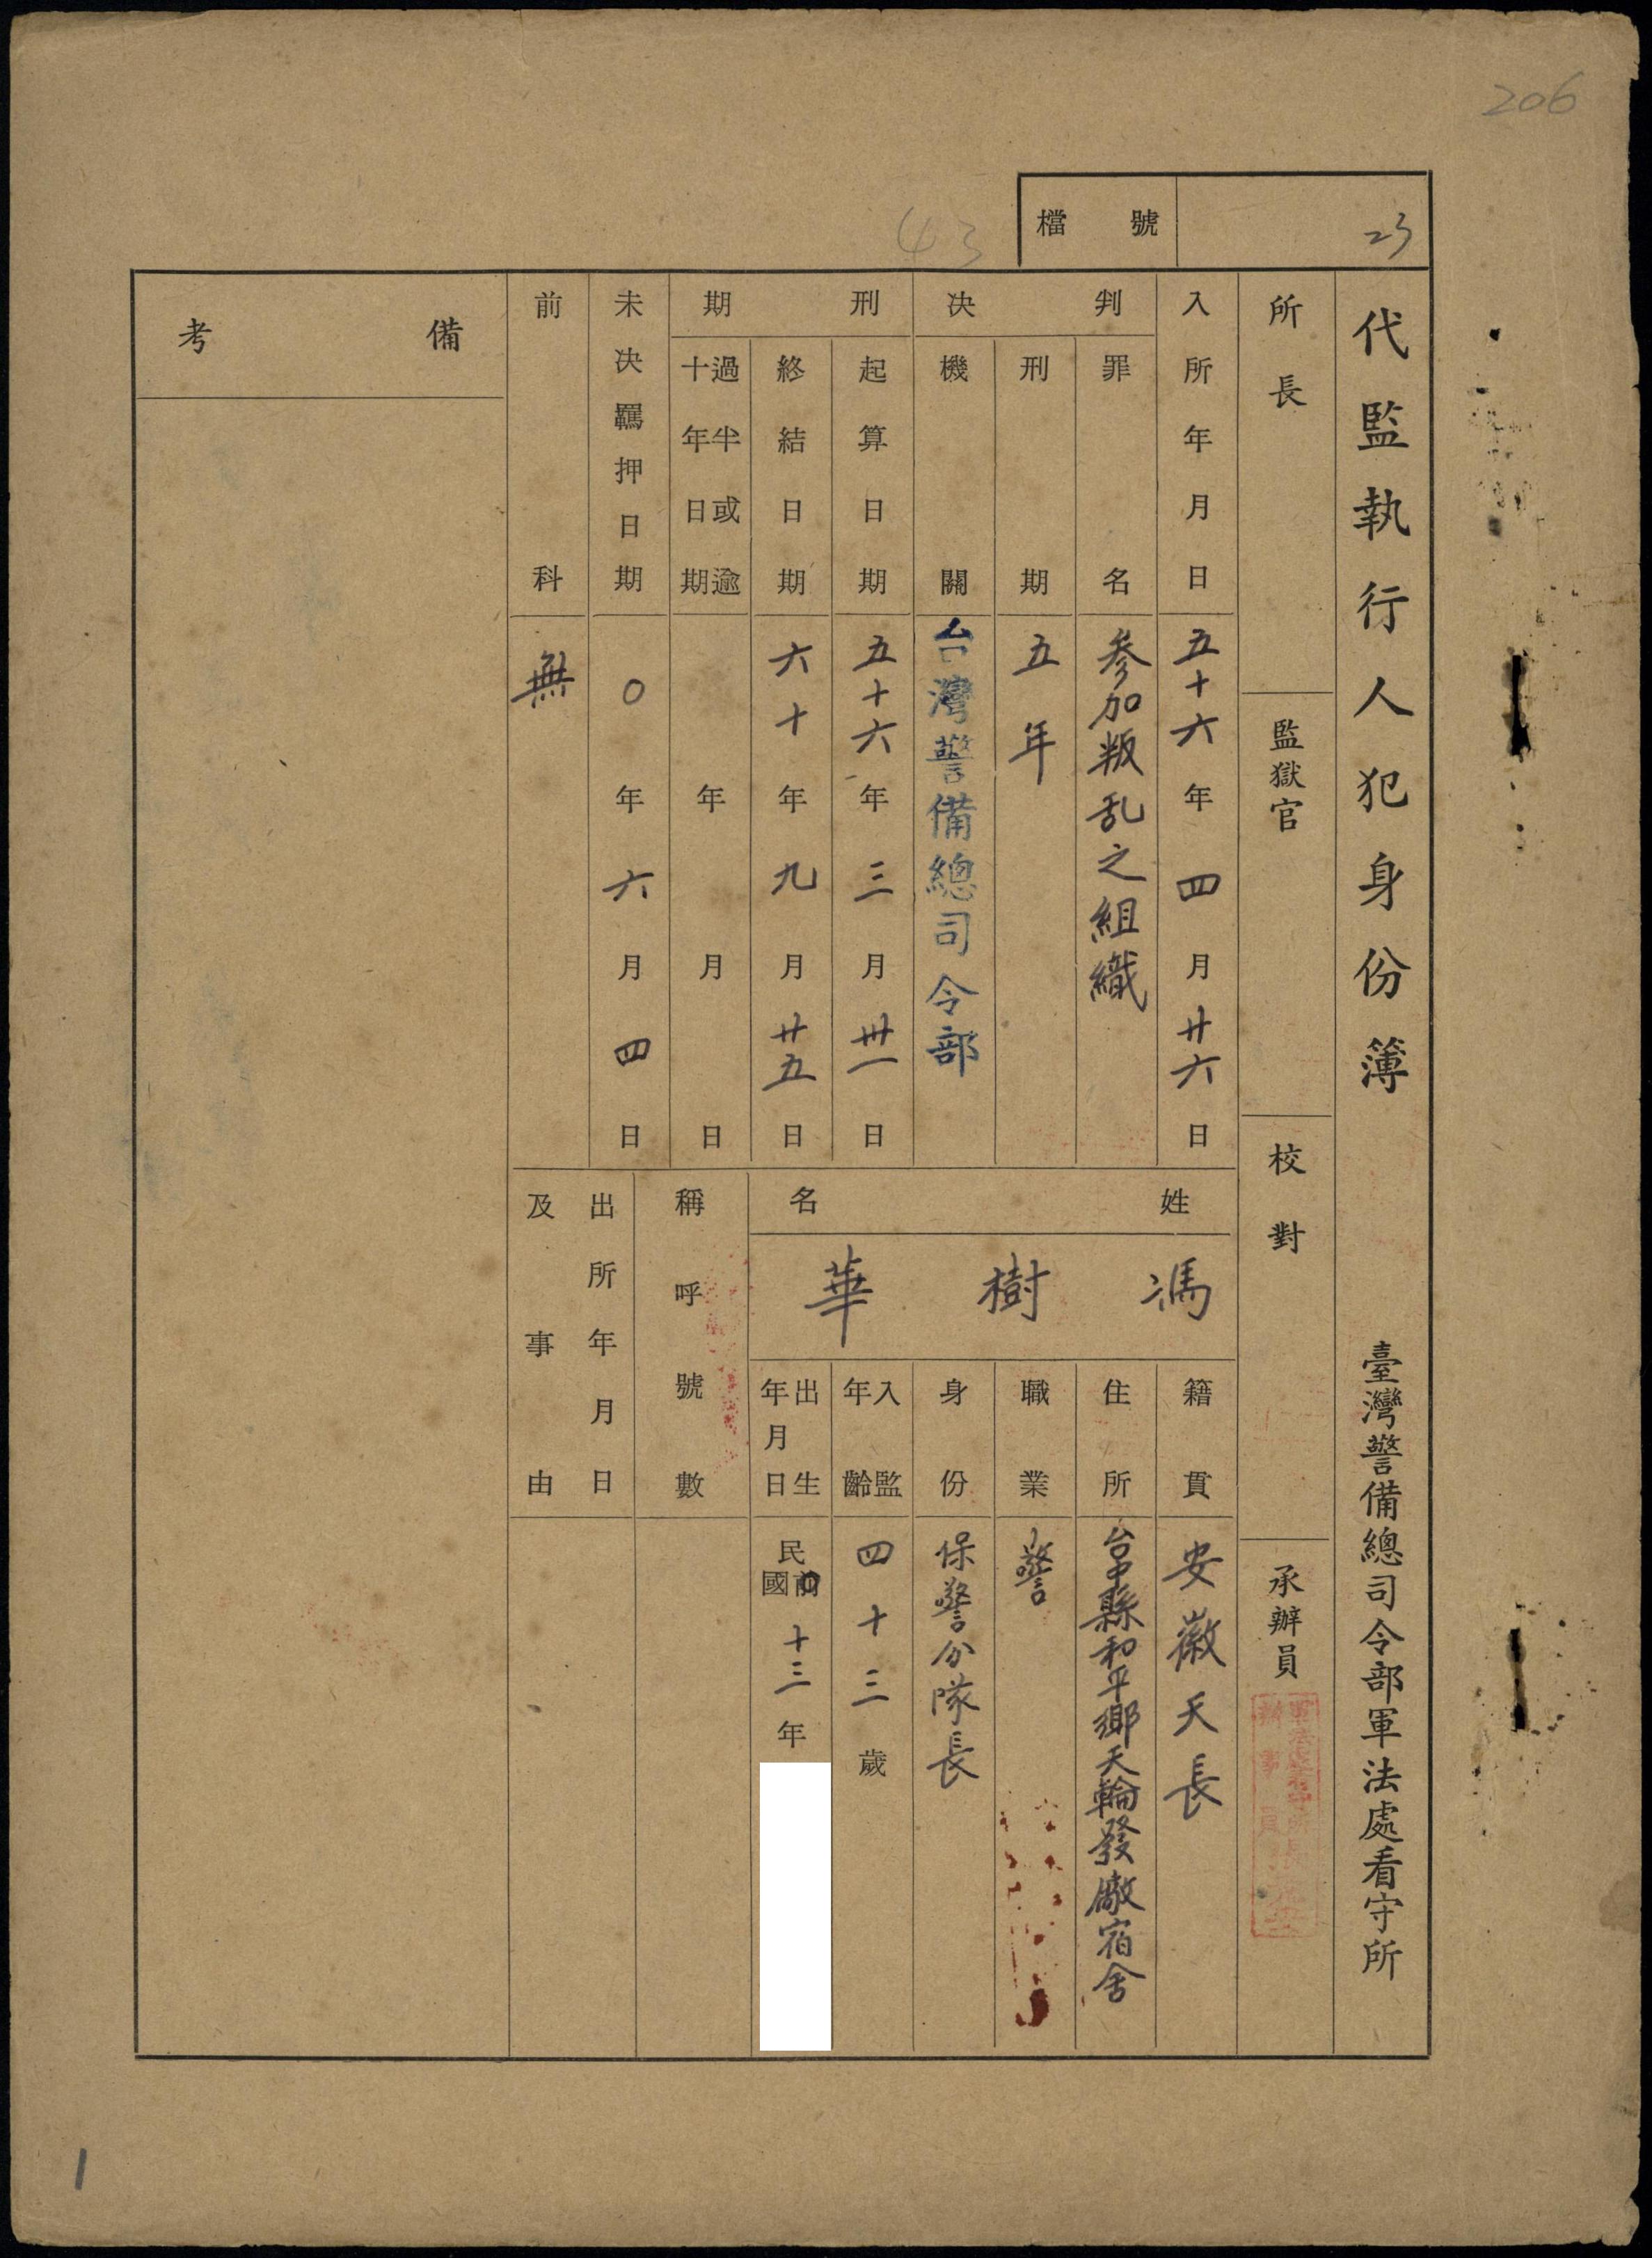 206
檔號
23
43
代監執行人犯身份簿
臺灣警備總司令部軍法處看守所
所長
監獄官
校對
承辦員
入所年月日
五十六年四月廿六日
判決
罪名
參加叛乱之組織
刑期
五年
機關
台灣警備總司令部
刑期
起算日期
五十六年三月卅一日
終結日期
六十年九月廿五日
過半或逾
十年日期
年月日
未決羈押日期
○年六月四日
前科
無
姓名
馮樹華
籍貫
安徽天長
住所
台中縣和平鄉天輪發廠宿舍
職業
警
身份
保警分隊長
入監
年齡
四十三歲
出生
年月日
民國前
十三年
稱呼號數
出所年月日
及事由
備考
1